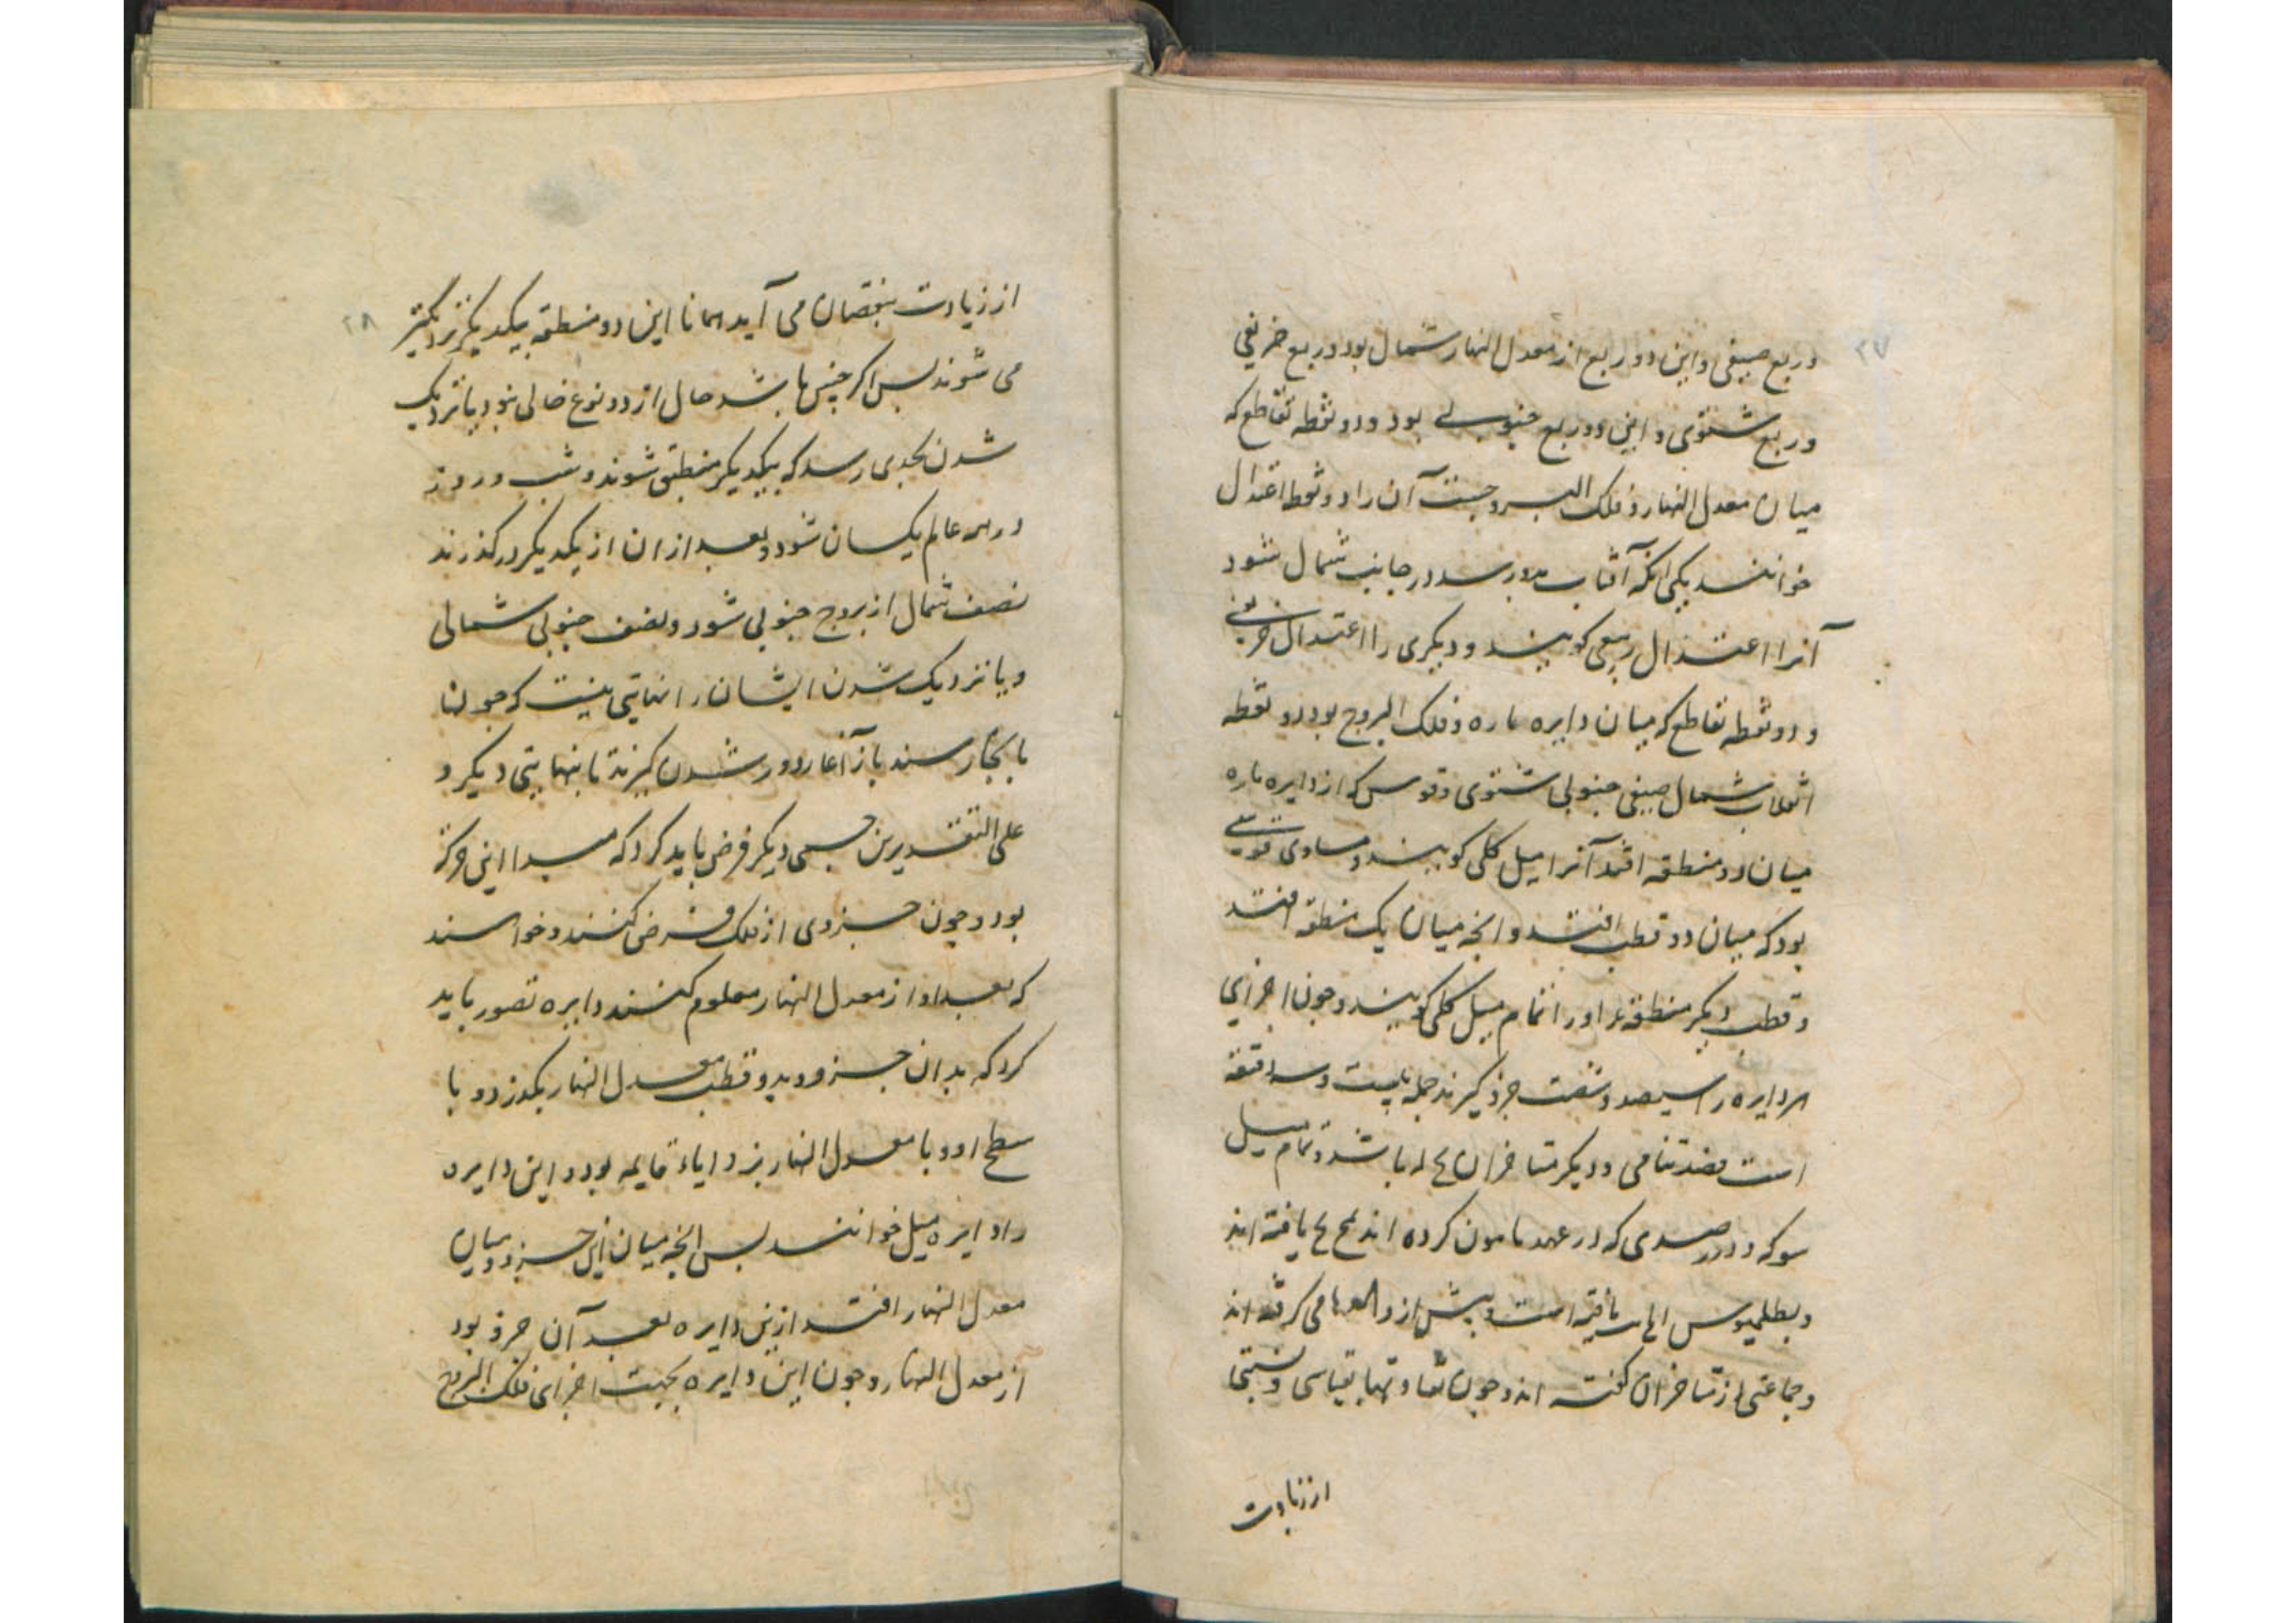 ۲۷
و ربع صیفی و این دو ربع از معدل النهار شمال بود و ربع خریفی
و ربع شتوی و این دو ربع جنوبی بود و دو نقطه تقاطع که
میان معدل النهار و فلک البروجست آن را دو نقطه اعتدال
خوانند یکی انکه آفتاب بدو رسد در جانب شمال شود
آنرا اعتدال ربیعی کویند و دیکری را اعتدال خریفی
و دو نقطه تقاطع که میان دایره ماره و فلک البروج بود دو نقطه
انقلاب شمال صیفی جنوبی شتوی و قوس که از دایره ماره
میان دو منطقه افتد آنرا میل کلی کویند و مساوی قوسی
بود که میان دو قطب افتد و انچه میان یک منطقه افتد
و قطب دیکر منطقه اورا تمام میل کلی کویند و چون اجزای
هر دایره را سیصد و شصت جزو کیرند جمله بیست و سه دقیقه
است و دیکر متاخران باشد و تمام میل
سوکه و در رصدی که در عهد مامون کرده اند یافته اند
و بطلمیوس یافته است و پیش از و می کرفته اند
و جماعتی از متاخران کفته اند و چون بقیاسی و نسبتی
از زیادت
۲۸
از زیادت بنقصان می آید همانا این دو منطقه بیکدیکر نزدیکتر
می شوند بس اکر چنین باشد حال از دو نوع خالی نبود یا نزدیک
شدن بحدی رسد که بیکدیکر منطبق شوند و شب و روز
در همه عالم یکسان شود و بعد از ان از یکدیکر در کذرند
نصف شمال از بروج جنوبی شود و نصف جنوبی شمالی
و یا نزدیک شدن ایشان را نهایتی نیست که چون
بانجا رسند باز آغاز دور شدن کیرند تا بنهایتی دیکر و
علی التقدیرین جسمی دیکر فرض باید کرد که مبدا این حرکة
بود و چون جزوی از فلک فرض کنند و خواهند
که بعد او از معدل النهار معلوم کنند دایره تصور باید
کرد که بدان جزو و بدو قطب معدل النهار بکذرد و با
سطح او و با معدل النهار بزوایاء قایمه بود و این دایره
را دایره میل خوانند بس انچه میان این جزو و میان
معدل النهار افتد ازین دایره بعد آن جزو بود
از معدل النهار و چون این دایره بجهت اجزای فلک البروج